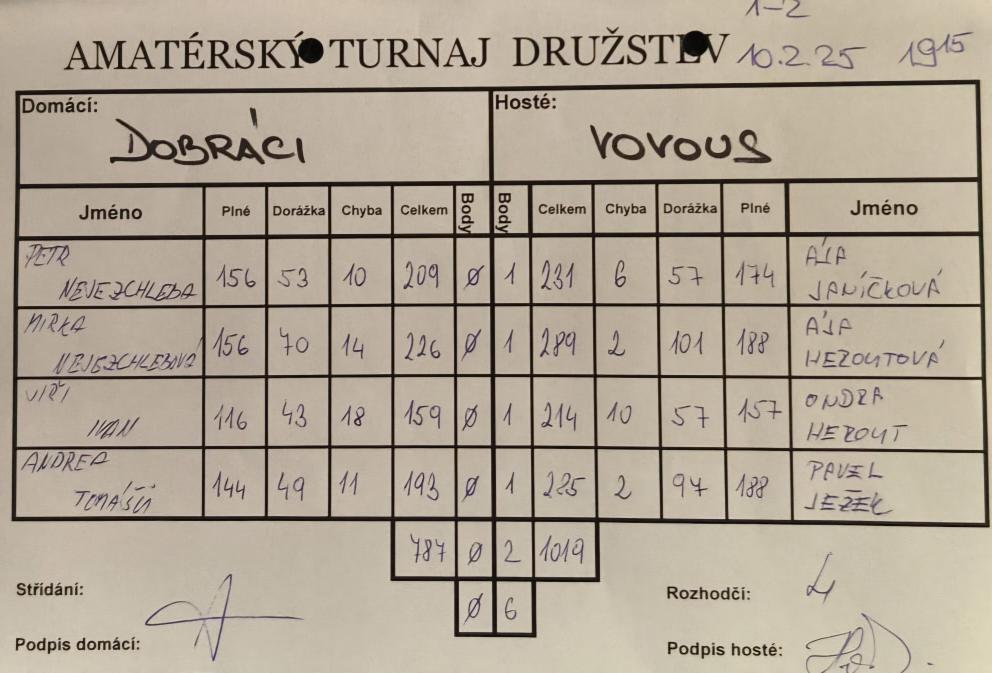 1-2
AMATÉRSKÝ TURNAJ DRUŽSTEV 10.2.25 1915
Domácí: Hosté:
DOBRÁCI VOVOUS
Jméno Plné Dorážka Chyba Celkem Body Body Celkem Chyba Dorážka Plné Jméno
PETR NEJEZCHLEBA 156 53 10 209 Ø 1 231 6 57 174 ÁJA JANÍČKOVÁ
MIRKA NEJEZCHLEBOVÁ 156 70 14 226 Ø 1 289 2 101 188 ÁJA HEROUTOVÁ
JIŘÍ IVAN 116 43 18 159 Ø 1 214 10 57 157 ONDRA HEROUT
ANDREA TOMÁŠŮ 144 49 11 193 Ø 1 285 2 97 188 PAVEL JEŽEK
787 Ø 2 1019
Ø 6
Střídání: Rozhodčí:
Podpis domácí: Podpis hosté: